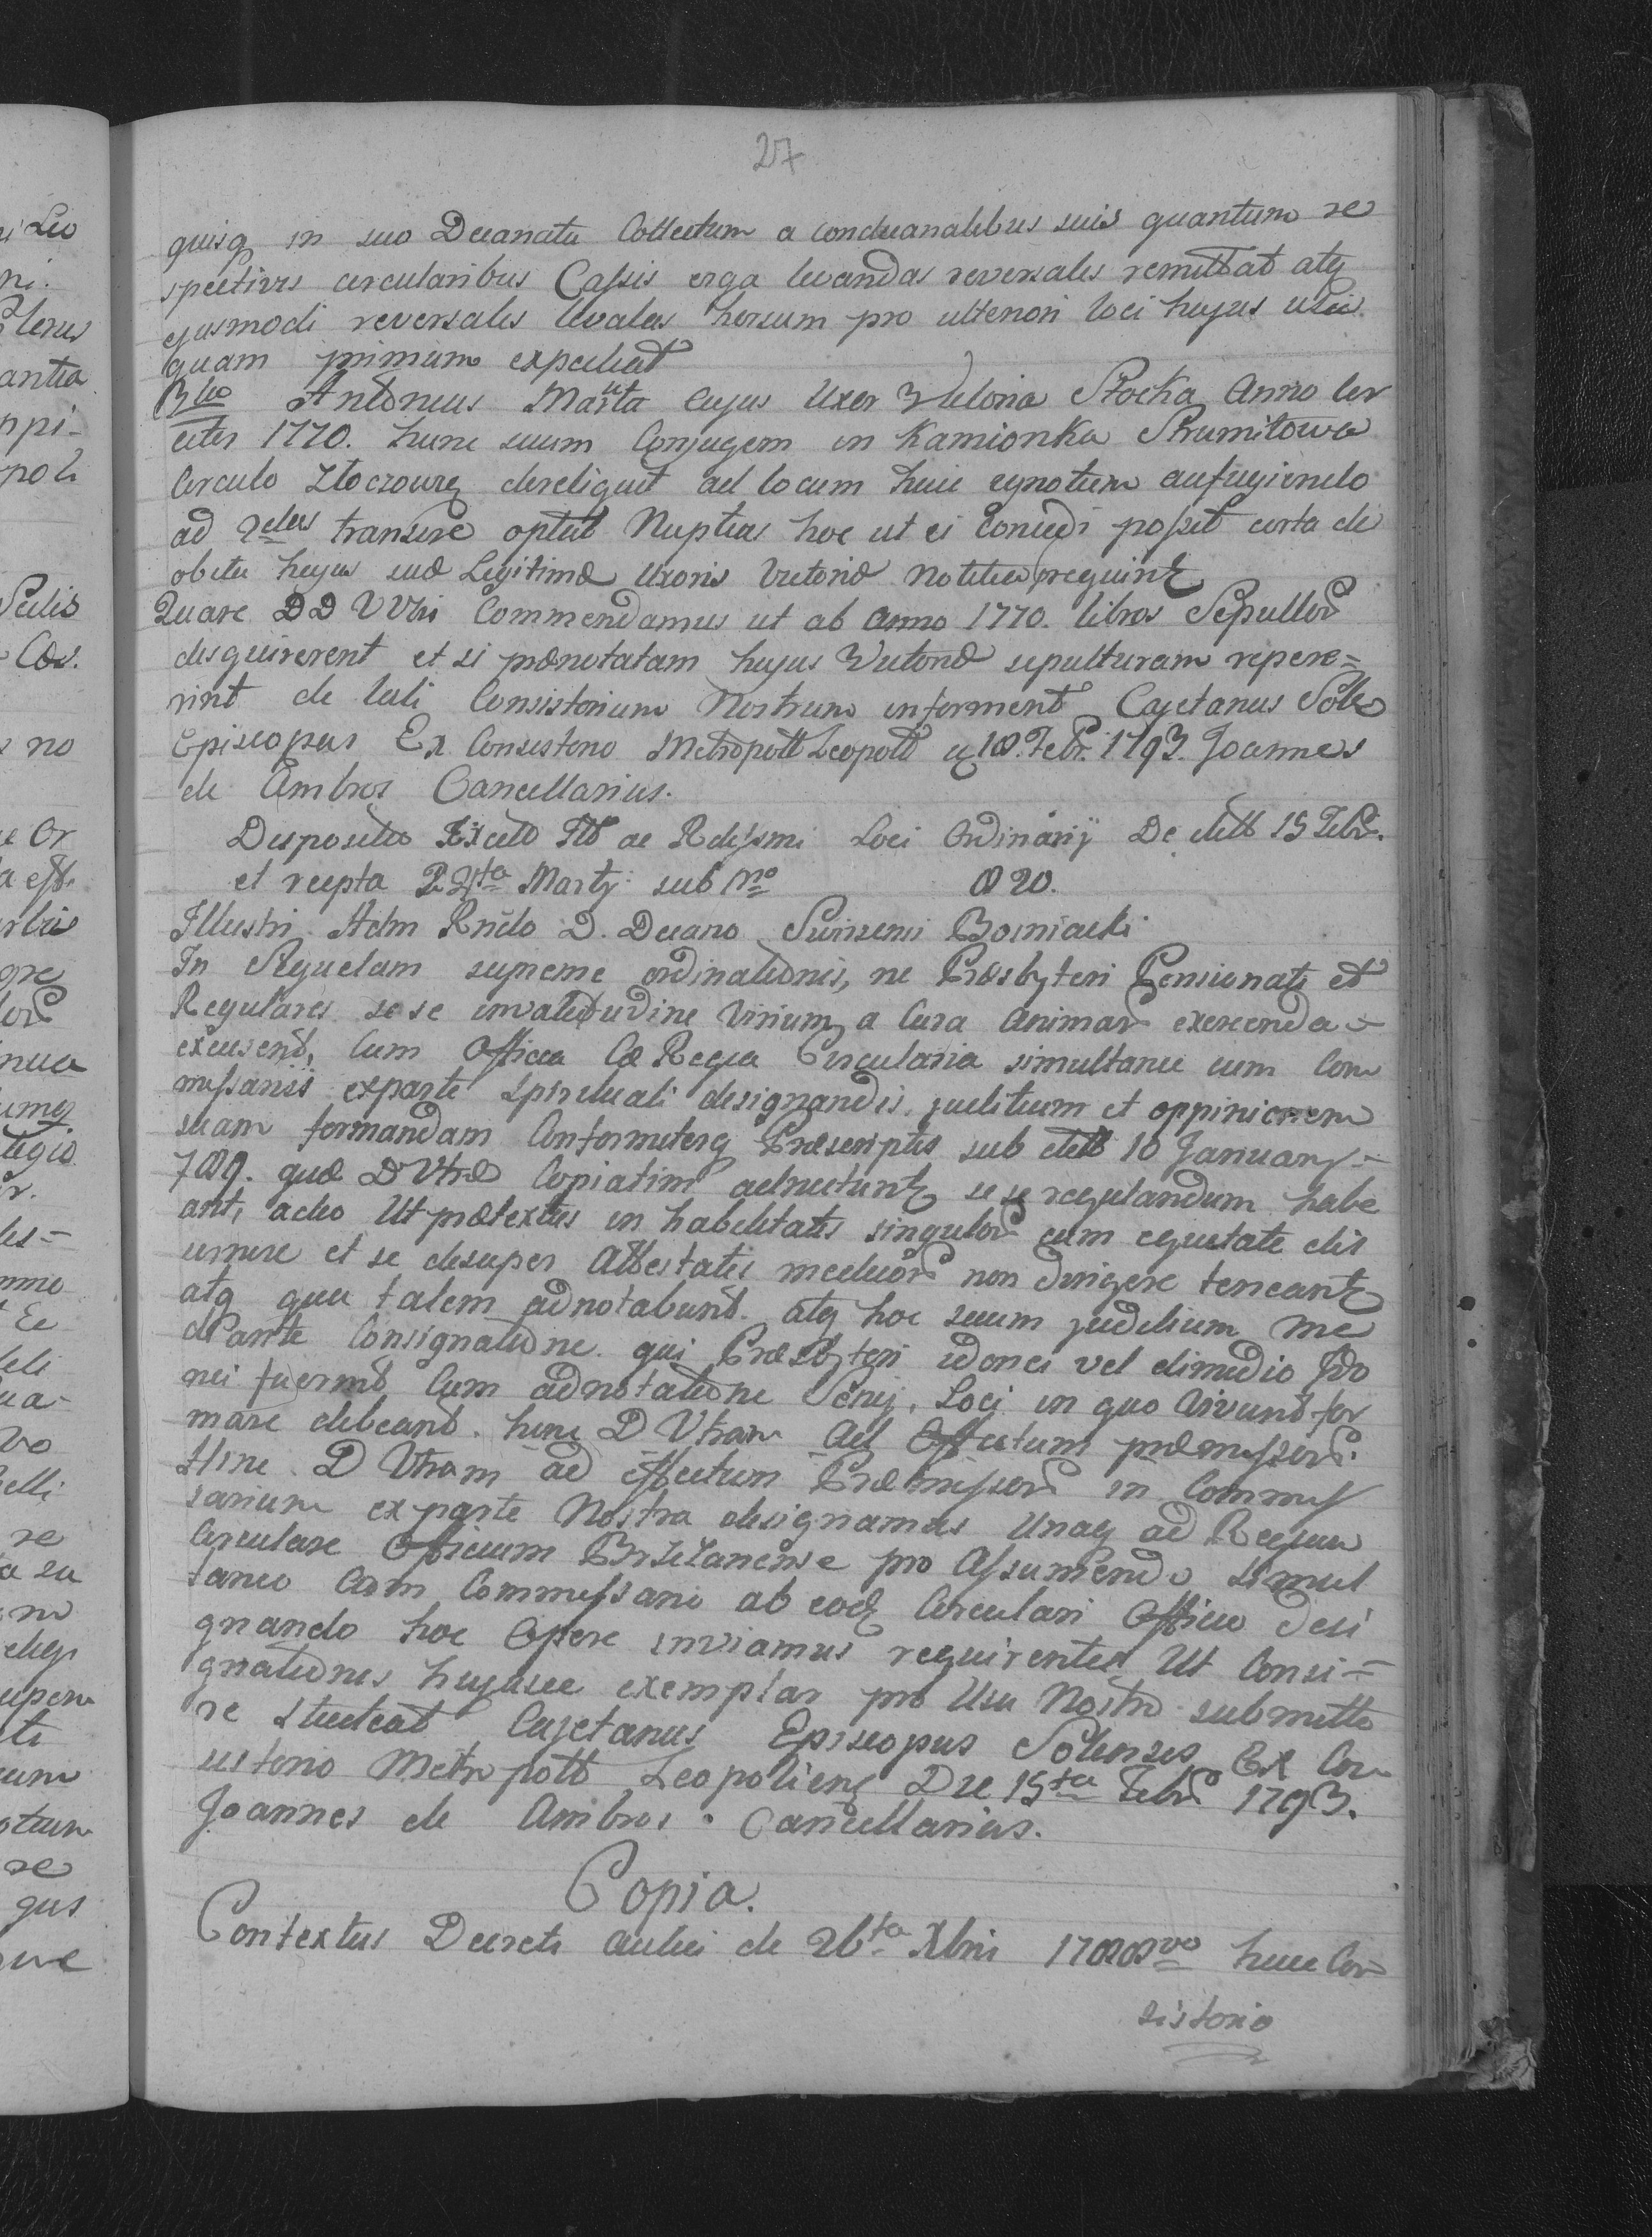 27
quisq in suo Decanatu Collectum a condecanalibus suis quantum re
spectivis circularibus Cassis erga levandas reversales remittat atq
ejusmodi reversales levatas horsum pro ulteriori loci hujus usu
quam primum expediat
3tio Antonius Marta Cujus Uxor Victoria Stocka Anno Cir
citer 1770. hunc suum Conjugem in Kamionka Strumitowa
Circulo Złoczowieq dereliquit ad locum huic ignotum aufugiendo
ad 2das transire optat Nuptias hoc ut ei concedi possit certa de
obitu hujus suæ Legitimæ Uxoris Victoriæ notitia requirit
Quare DD VVtris Commendamus ut ab anno 1770. libros Sepultor
disquirerent et si prænotatam hujus Victoriæ sepulturam repere=
rint de tali Consistorium Nostrum informent Cajetanus Soll
Episcopus Ex Consistorio Metropoll Leopoll 18. Febr. 1793. Joannes
de Ambros Cancellarius.
Dispositio Excell Ill ac Rdissmi Loci Ordinarij De dtto 15 Febr.
et recepta 24ta Martij sub No 820.
Illustri Adm Rndo D. Decano Swirzensi Bosniacki
In Sequelam supremæ ordinationis, ne Præsbyteri Pensionati et
Regulares se se invaletudine Virium a Cura Animar exercenda=
excusent, Cum Officia Cæ Regia Circularia simultanee cum Com
missariis exparte Spirituali designandis judicium et oppinionem
suam formandam Conformiterq Præscriptis sub dtto 10 January=
789. quæ D Vtræ Copiatim adnectunt se se regulandum habe
ant, adeo Ut prætextus in habilitatis singulor cum equitate dis
cernere et se desuper Attestatis medicor non dirigere teneant
atq qua talem adnotabunt. atq hoc suum judicium me
diante Consignatione. qui Præsbyteri idonei vel dimidio Ido
nei fuerint Cum adnotatione Senij, Loci in quo Vivunt for
mare debeant. hinc D Vtram ad Effectum præmissor.
Hinc D Vtram ad effectum Præmissor in Commis
sarium ex parte Nostra designamus Unaq ad Regium
Circulare Officium Brzezanense pro Assumendo simul
taneo Cum Commissario ab eod Circulari Officio desi
gnando hoc Opere inviamus requirentes Ut Consi=
gnationis hujusce exemplar pro Usu Nostro submitte
re studeat Cajetanus Episcopus Solensis Ex Con
sistorio Metropoll Leopoliens Die 15ta Febr 1793.
Joannes de Ambros. Cancellarius.
Copia.
Contextus Decreti Aulici de 26ta Xbris 1788vo huic Con
sistorio